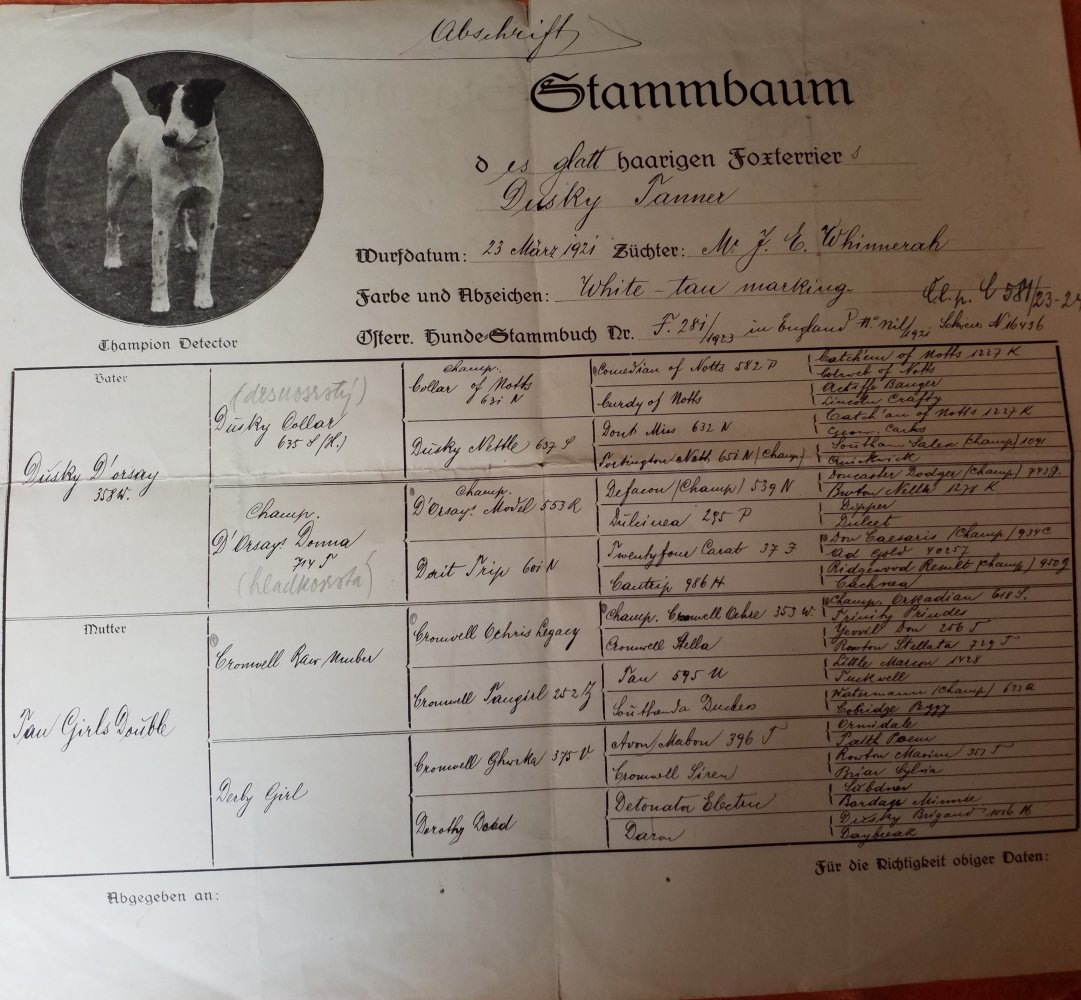 Abschrift
Stammbaum
des glatt haarigen Foxterriers
Dusky Tanner
Wurfdatum: 23 März 1921 Züchter: Mr J. E. Whinnerah
Farbe und Abzeichen: White - tan marking
Österr. Hunde-Stammbuch Nr. F. 281/1923 in England No nil/1921 Schweiz N 16436
Čl. p. C 581/23-24
Champion Detector
Vater
Dusky D'orsay
358 W.
(desnosrstý)
Dusky Collar
635 S (H.)
Champ.
D'Orsays Donna
714 T
(hladkosrstá)
Champ.
Collar of Notts
631 N
Dusky Nettle 637 S
Champ.
D'Orsays Model 553 R
Dorit Trip 601 N
Comedian of Notts 582 P
Curdy of Notts
Dont Miss 632 N
Nett 651 N (Champ)
Defacon (Champ) 539 N
Dulcinea 295 P
Twentyfour Carat 37 F
Cantrip 986 H
Catch'em of Notts 1227 K
Cobweb of Notts
Banger
Lincoln Crafty
Catch'em of Notts 1227 K
Southan (Champ) 1091
Quickwick
Doncaster Dodger (Champ) 743 g.
Nettle 1278 K
Dipper
Dulcet
Don Caesaris (Champ) 934 C
Gold 40257
Ridgewood Result (Champ) 950 g
Cachnea
Mutter
Tan Girls Double
Cromwell Raw Umber
Derby Girl
Cromwell Ochris Legacy
Cromwell Tangirl 252 Z
Cromwell 375 V
Dorothy
Champ. Cromwell Ochre 353 W
Cromwell Stella
Tan 595 U
Duchess
Avon Mabon 396 T
Cromwell Siren
Detonator
Champ. Orkadian 618 S.
Trinity
Yeovil Don 256 T
Rowton Stellata 729 T
Little Marcon 1428
Tuckwell
Watermann (Champ) 633 a
Cobridge Peggy
Ormidale
Faith Poem
Rowton Maxim 351 T
Briar Sylvia
Subduer
Bordage Minnie
Dusky Brigand 1006 H
Daybreak
Für die Richtigkeit obiger Daten:
Abgegeben an: